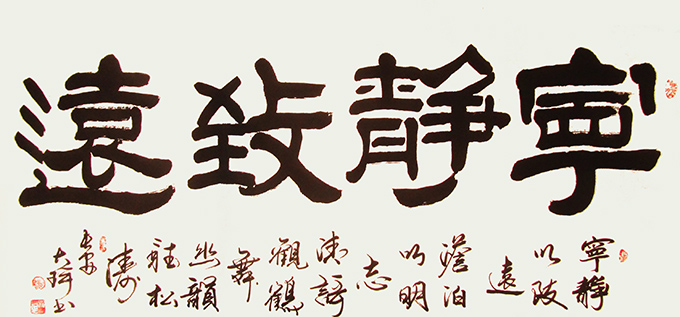 寧靜致遠
寧靜
以致
遠
澹泊
以明
志
觀鶴
舞
幽韻
聽松
濤
書